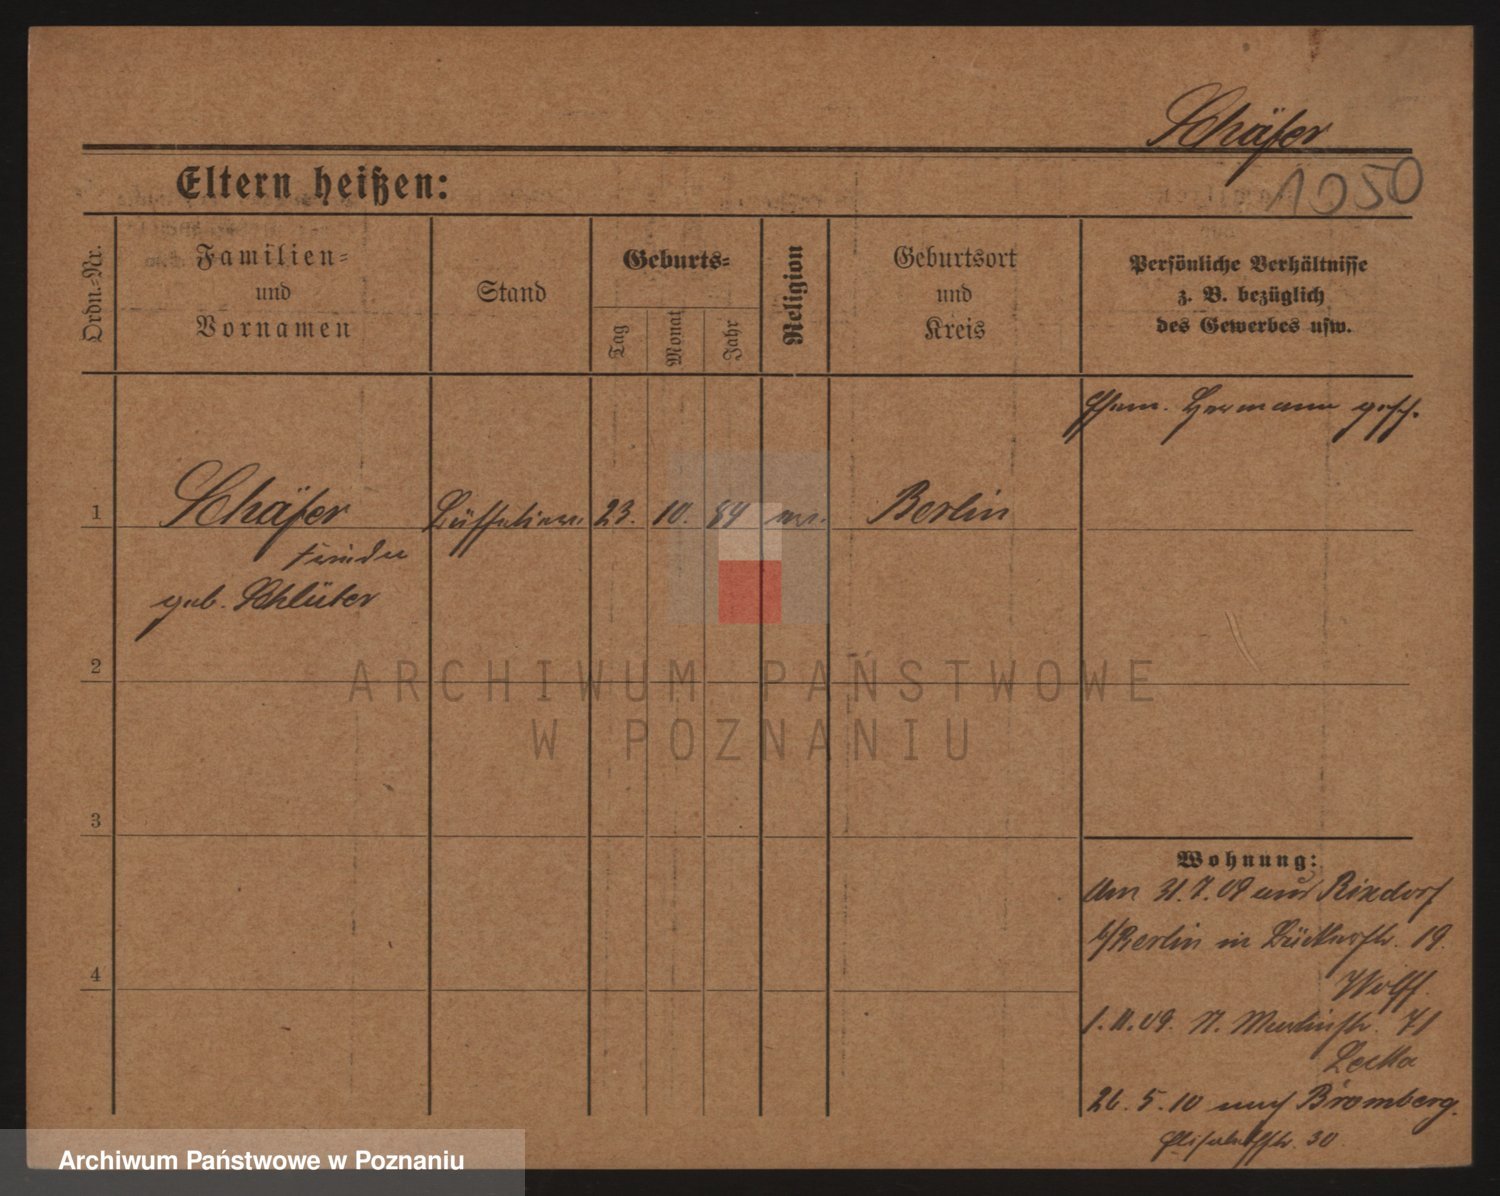 Schäfer
1050
Eltern heißen:
Ordn.-Nr.
Familien-
und
Vornamen
Stand
Geburts-
Tag
Monat
Jahr
Religion
Geburtsort
und
Kreis
Persönliche Verhältnisse
z. B. bezüglich
des Gewerbes usw.
Ehem. Hermann gesch.
1
Schäfer
23.
10.
84
ev.
Berlin
geb. Schlüter
2
3
4
Wohnung:
Am 31.7.09 aus Rixdorf
b/Berlin in 19.
Wolff.
1.11.09. 71
26.5.10 nach Bromberg.
Elisabethstr. 30
ARCHIWUM PAŃSTWOWE
W POZNANIU
Archiwum Państwowe w Poznaniu